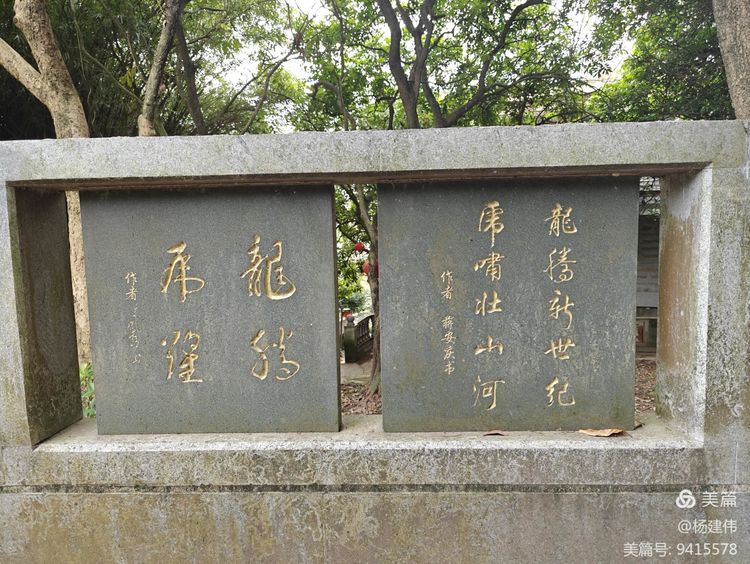 龍騰新世纪
虎嘯壯山河
作者 蒋安庆书
龍騰
虎躍
作者
美篇
@杨建伟
美篇号: 9415578